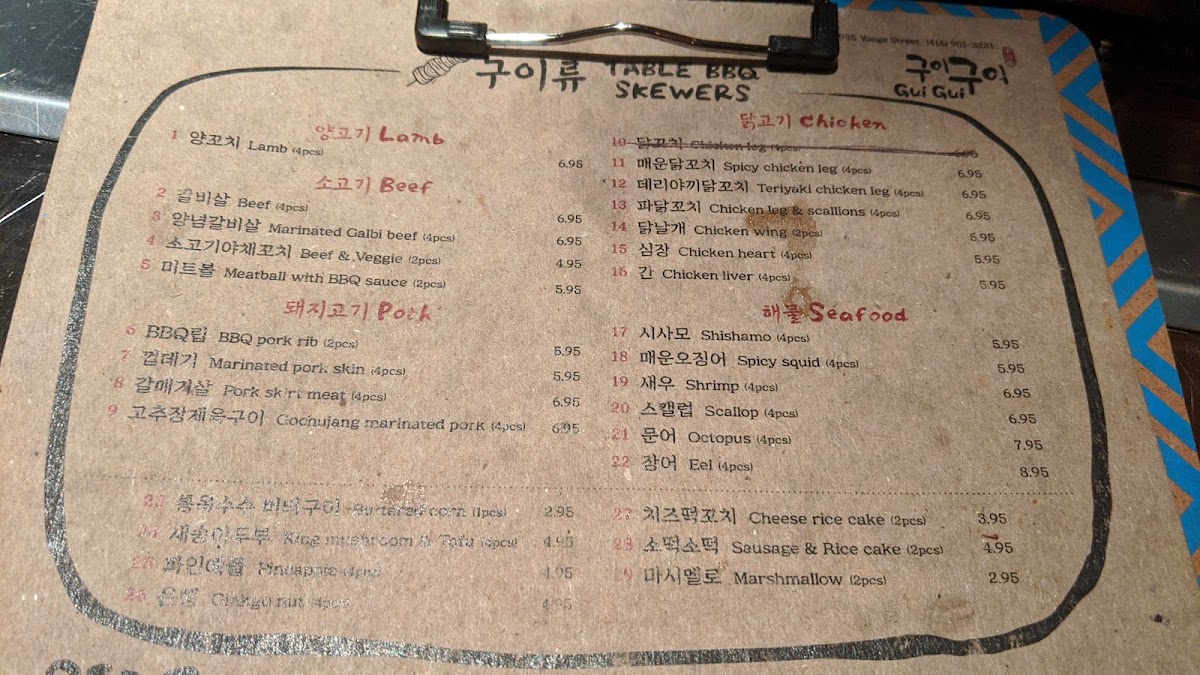 구이류 TABLE BBQ SKEWERS
Yonge Street (416) 901-3231
구이구이
Gui Gui
양고기 Lamb
1 양꼬치 Lamb (4pcs) 6.95
소고기 Beef
2 갈비살 Beef (4pcs) 6.95
3 양념갈비살 Marinated Galbi beef (4pcs) 6.95
4 소고기야채꼬치 Beef & Veggie (2pcs) 4.95
5 미트볼 Meatball with BBQ sauce (2pcs) 5.95
돼지고기 Pork
6 BBQ립 BBQ pork rib (2pcs) 5.95
7 껍데기 Marinated pork skin (4pcs) 5.95
8 갈매기살 Pork skirt meat (4pcs) 6.95
9 고추장제육구이 Gochujang marinated pork (4pcs) 6.95
닭고기 Chicken
10 닭꼬치 Chicken leg (4pcs) 6.95
11 매운닭꼬치 Spicy chicken leg (4pcs) 6.95
12 데리야끼닭꼬치 Teriyaki chicken leg (4pcs) 6.95
13 파닭꼬치 Chicken leg & scallions (4pcs) 6.95
14 닭날개 Chicken wing (2pcs) 5.95
15 심장 Chicken heart (4pcs) 5.95
15 간 Chicken liver (4pcs) 5.95
해물 Seafood
17 시사모 Shishamo (4pcs) 5.95
18 매운오징어 Spicy squid (4pcs) 5.95
19 새우 Shrimp (4pcs) 6.95
20 스캘럽 Scallop (4pcs) 6.95
21 문어 Octopus (4pcs) 7.95
22 장어 Eel (4pcs) 8.95
23 통옥수수 버터구이 Buttered corn (1pcs) 2.95
24 새송이두부 King mushroom & Tofu (4pcs) 4.95
파인애플 (4pcs) 4.95
은행 Ginkgo nut (4pcs) 4.95
27 치즈떡꼬치 Cheese rice cake (2pcs) 3.95
28 소떡소떡 Sausage & Rice cake (2pcs) 4.95
마시멜로 Marshmallow (2pcs) 2.95